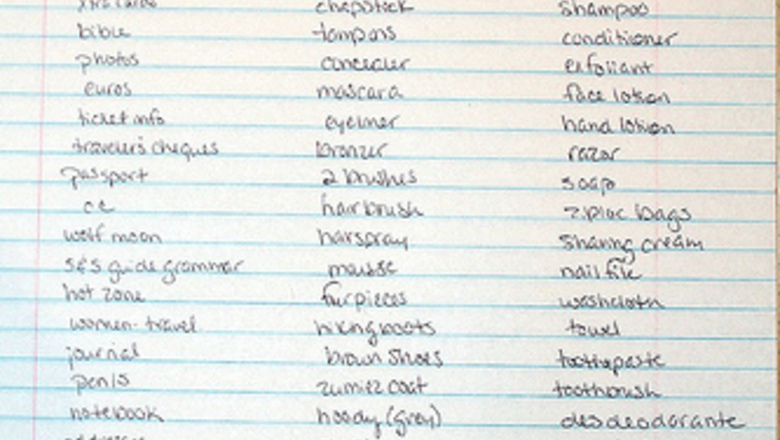 chapstick shampoo
bible tampons conditioner
photos concealer exfoliant
euros mascara face lotion
ticket info eyeliner hand lotion
traveler's cheques bronzer razor
passport 2 brushes soap
cc hairbrush ziploc bags
wolf moon hairspray shaving cream
guide grammar mousse nail file
hot zone washcloth
women-travel hiking boots towel
journal brown shoes toothpaste
pen/s zumiez coat toothbrush
notebook hoody (grey) desdeodorante